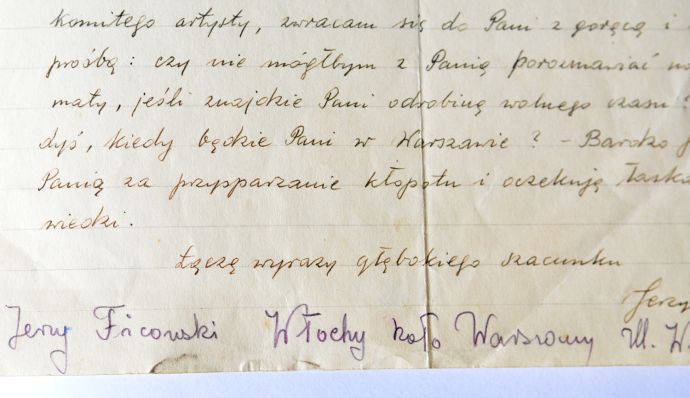 komitego artysty, zwracam się do Pani z gorącą i
prośbą: czy nie mógłbym z Panią porozmawiać na
maty, jeśli znajdzie Pani odrobinę wolnego czasu i
dyś, kiedy będzie Pani w Warszawie? - Bardzo
Panią za przysparzanie kłopotu i oczekuję łaska
wiedzi.
Łączę wyrazy głębokiego szacunku
Jerzy
Jerzy Ficowski Włochy koło Warszawy Ul. W